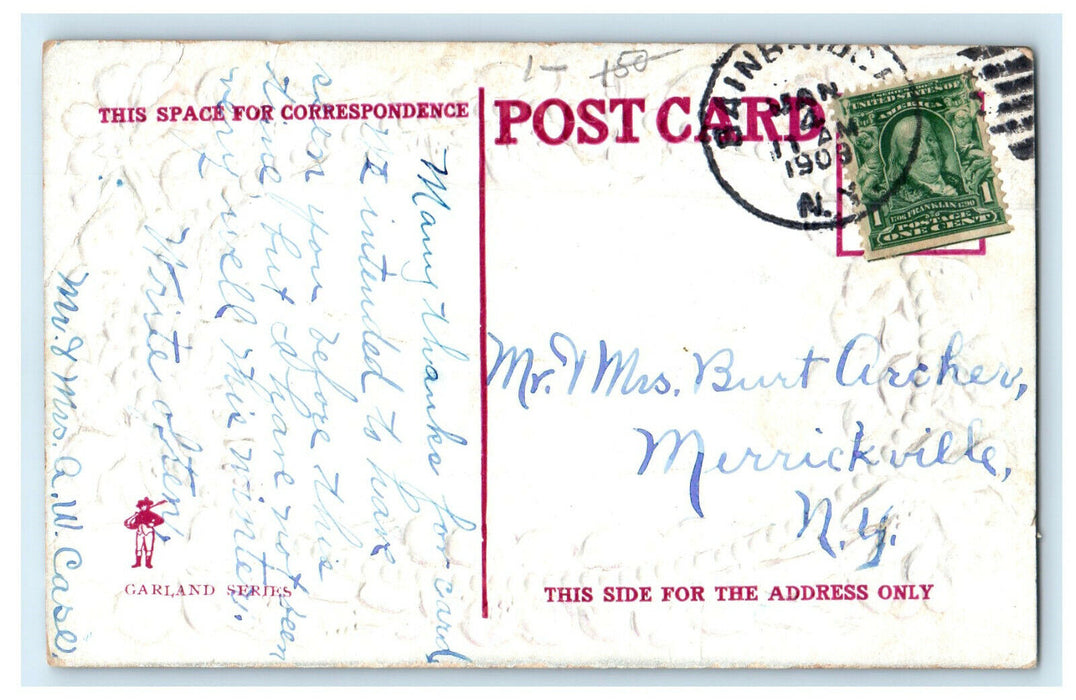 1- 150-
THIS SPACE FOR CORRESPONDENCE
POST CARD
BAINBRIDGE
JAN
4
11 AM
1909
N.Y.
UNITED STATES
OF AMERICA
1 1706 FRANKLIN 1790 1
POSTAGE
ONE CENT
Many thanks for card
intended to have
seen you before this
time, but I have not been
very well this winter.
Write often.
Mr. & Mrs. A. W. Case.
Mr. & Mrs. Burt Archer,
Merrickville,
N.Y.
GARLAND SERIES
THIS SIDE FOR THE ADDRESS ONLY